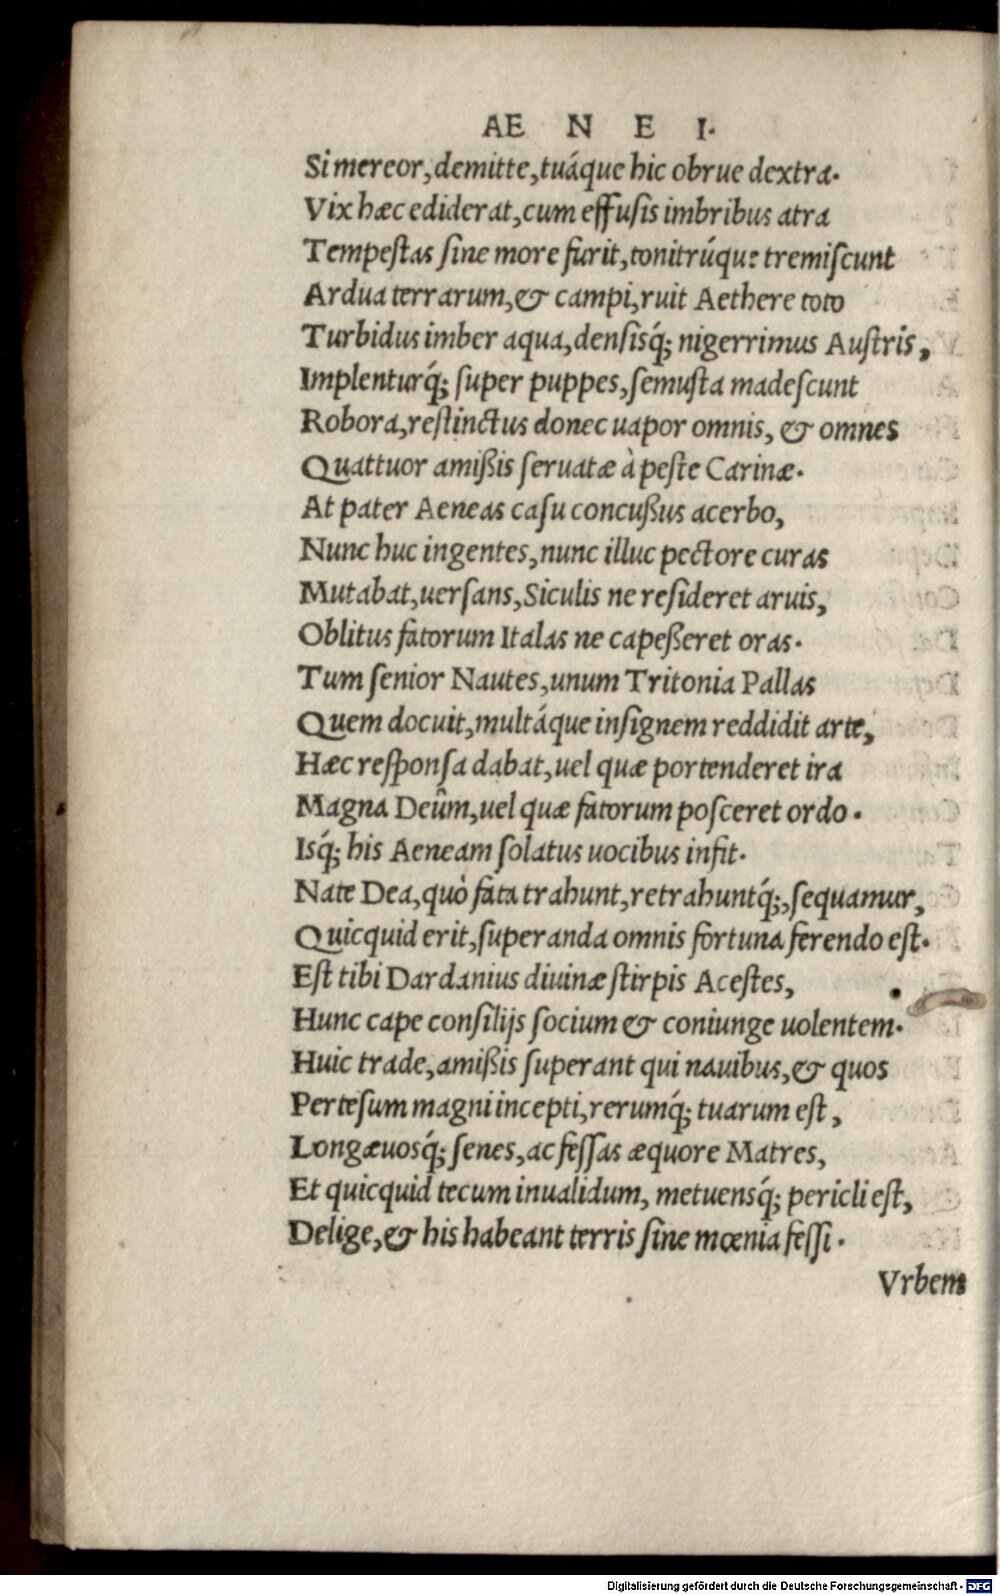 AE N E I.
Si mereor, demitte, tuáque hic obrue dextra.
Vix hæc ediderat, cum effusis imbribus atra
Tempestas sine more furit, tonitrúque tremiscunt
Ardua terrarum, & campi, ruit Aethere toto
Turbidus imber aqua, densisq́; nigerrimus Austris,
Implenturq́; super puppes, semusta madescunt
Robora, restinctus donec uapor omnis, & omnes
Quattuor amißis seruatæ à peste Carinæ.
At pater Aeneas casu concußus acerbo,
Nunc huc ingentes, nunc illuc pectore curas
Mutabat, uersans, Siculis ne resideret aruis,
Oblitus fatorum Italas ne capeßeret oras.
Tum senior Nautes, unum Tritonia Pallas
Quem docuit, multáque insignem reddidit arte,
Hæc responsa dabat, uel quæ portenderet ira
Magna Deûm, uel quæ fatorum posceret ordo.
Isq́; his Aeneam solatus uocibus infit.
Nate Dea, quò fata trahunt, retrahuntq́;, sequamur,
Quicquid erit, superanda omnis fortuna ferendo est.
Est tibi Dardanius diuinæ stirpis Acestes,
Hunc cape consilijs socium & coniunge uolentem.
Huic trade, amißis superant qui nauibus, & quos
Pertesum magni incepti, rerumq́; tuarum est,
Longæuosq́; senes, ac fessas æquore Matres,
Et quicquid tecum inualidum, metuensq́; pericli est,
Delige, & his habeant terris sine mœnia fessi.
Vrbem
Digitalisierung gefördert durch die Deutsche Forschungsgemeinschaft - DFG